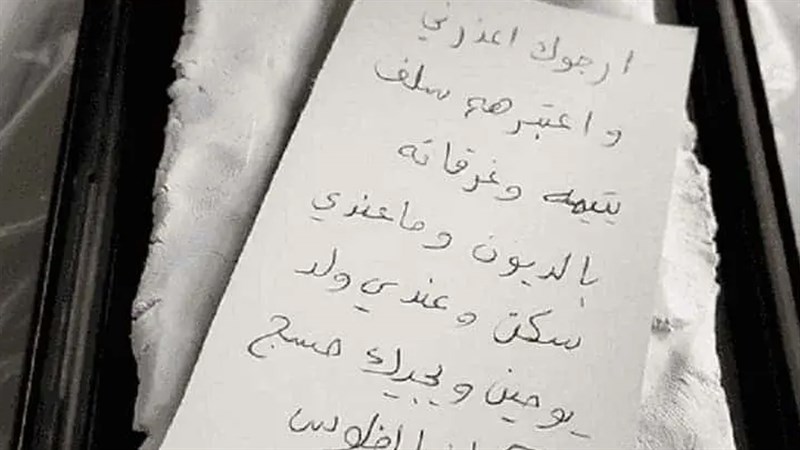 ارجوك اعذرني
واعتبرهه سلف
يتيمه وغرقانه
بالديون وماعندي
سكن وعندي ولد
يومين ويجيك مسج
افلوس